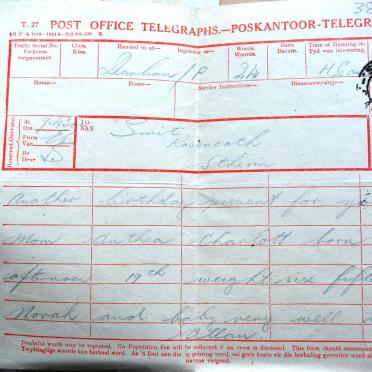 38
T. 27 POST OFFICE TELEGRAPHS.—POSKANTOOR-TELEGR
Traffic Serial No.
Verkeers-
volgnommer.
Class.
Klas.
Handed in at—
Ingelewer te—
Words.
Woorde.
Time of Handing in.
Tyd van inlewering.
Durban / P
24
Route—
Roete—
Service Instructions—
Diensaanwysings—
Received. Ontvang.
At
Om
9.43
From
Van
By
Deur
TO
AAN
Smit
Roseneath
Sthein
Another birthday present for
Mom Anthea Charlott born
afternoon 19th weight six
Norah and baby very well
Allan.
Doubtful words may be repeated. No Repetition Fee will be collected if an error is disclosed. This form should accompany
Twyfelagtige woorde kan herhaal word. As 'n fout aan die
sal geen koste vir die herhaling gevorder word
navraag vergesel.